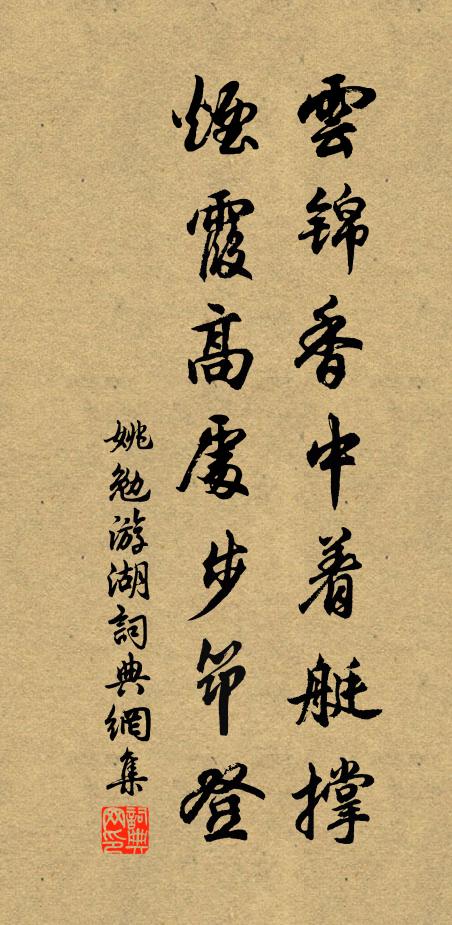 雲锦香中着艇撑
煙霞高處步筇登
姚勉游湖詞典網集
詞典网印